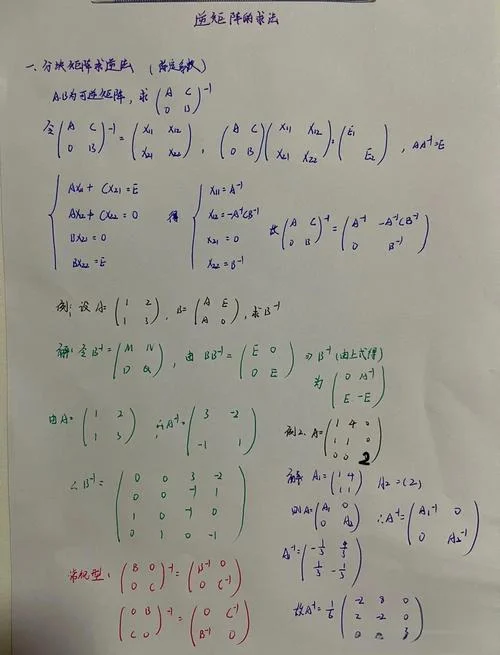 逆矩阵的求法
一、分块矩阵求逆法 (待定系数)
A,B为可逆矩阵, 求 (A C; 0 B)⁻¹
令 (A C; 0 B)⁻¹ = (X₁₁ X₁₂; X₂₁ X₂₂), (A C; 0 B)(X₁₁ X₁₂; X₂₁ X₂₂) = (E₁ ; E₂), AA⁻¹=E
{ AX₁₁ + CX₂₁ = E
AX₁₂ + CX₂₂ = 0
BX₂₁ = 0
BX₂₂ = E
得 { X₁₁ = A⁻¹
X₁₂ = -A⁻¹CB⁻¹
X₂₁ = 0
X₂₂ = B⁻¹
故 (A C; 0 B)⁻¹ = (A⁻¹ -A⁻¹CB⁻¹; 0 B⁻¹)
例: 设 A = (1 2; 1 3), B = (A E; A 0), 求B⁻¹
解: 令 B⁻¹ = (M N; D Q), 由 BB⁻¹ = (E 0; 0 E) ⇒ B⁻¹ (由上式得)
为 (0 A⁻¹; E -E)
由A = (1 2; 1 3) ∴A⁻¹ = (3 -2; -1 1)
∴B⁻¹ = (0 0 3 -2; 0 0 -1 1; 1 0 -1 0; 0 1 0 -1)
常见型: (B 0; 0 C)⁻¹ = (B⁻¹ 0; 0 C⁻¹)
(0 B; C 0)⁻¹ = (0 C⁻¹; B⁻¹ 0)
例2. A = (1 4 0; 1 1 0; 0 0 2)
解 A₁ = (1 4; 1 1) A₂ = (2)
则A = (A₁ 0; 0 A₂) ∴A⁻¹ = (A₁⁻¹ 0; 0 A₂⁻¹)
A₁⁻¹ = (-1/3 4/3; 1/3 -1/3)
故A⁻¹ = 1/6 (-2 8 0; 2 -2 0; 0 0 3)